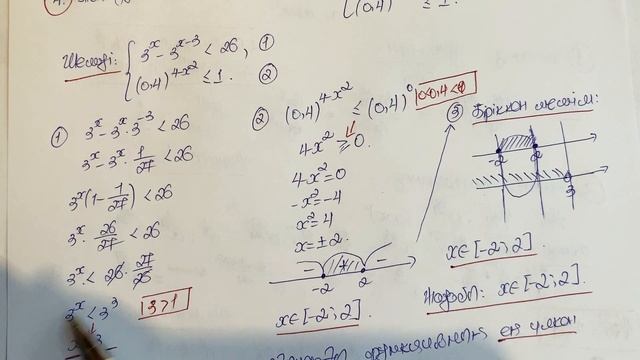 (0,4) ≤ 1.
Шешуі: { 3^x - 3^{x-3} < 26, ①
(0,4)^{4-x^2} ≤ 1. ②
① 3^x - 3^x · 3^{-3} < 26
3^x - 3^x · 1/27 < 26
3^x (1 - 1/27) < 26
3^x · 26/27 < 26
3^x < 26 · 27/26
3^x < 3^3
3>1
② (0,4)^{4-x^2} ≤ (0,4)^0
0<0,4<1
4-x^2 ≥ 0.
4-x^2 = 0
-x^2 = -4
x^2 = 4
x = ± 2.
- + -
-2 2
x∈[-2; 2].
③ Біріккен шешім:
-2 2
3
x∈[-2; 2].
Жауабы: x∈[-2; 2].
ең үлкен